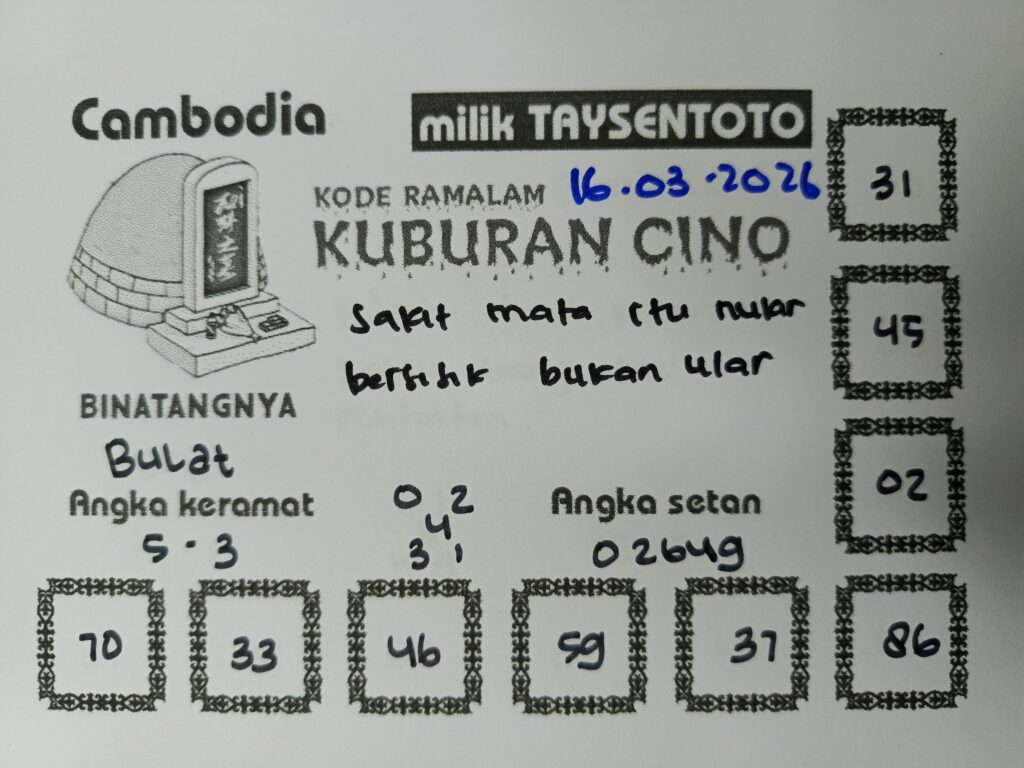 Cambodia
milik TAYSENTOTO
KODE RAMALAM 16.03.2026
KUBURAN CINO
Sakit mata itu nular
bersisik bukan ular
BINATANGNYA
Bulat
Angka keramat
5 . 3
0 2
4
3 1
Angka setan
02649
31
45
02
70 33 46 59 37 86